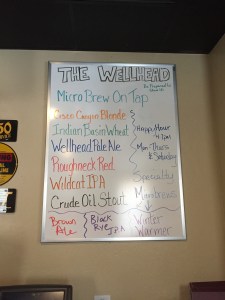 THE WELLHEAD
Micro Brew On Tap
Cisco Canyon Blonde
Indian Basin Wheat
Wellhead Pale Ale
Roughneck Red
Wildcat IPA
Crude Oil Stout
Happy Hour
4-7pm
Mon-Thurs
& Saturday
Specialty
Microbrews
Brown
Ale
Black
Rye
IPA
Winter
Warmer